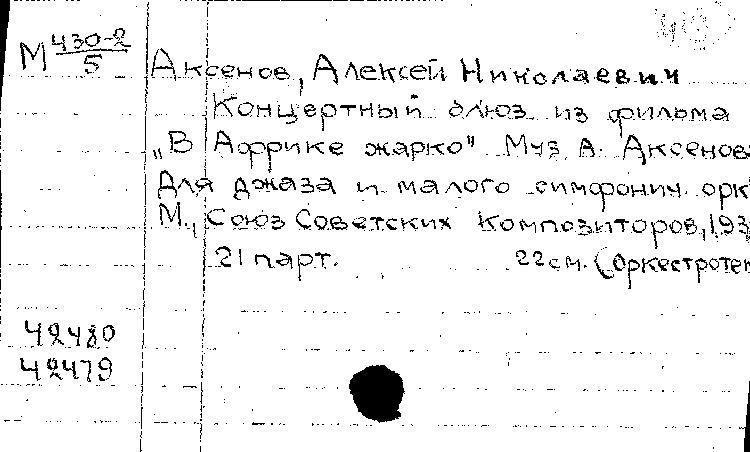 М 430-2/5
Аксенов, Алексей Николаевич
Концертный блюз из фильма
„В Африке жарко" Муз А. Аксенов
Для джаза и малого симфонич. орк
М., Союз Советских Композиторов, 193
21 парт. 22 см. (Оркестротек
42480
42479